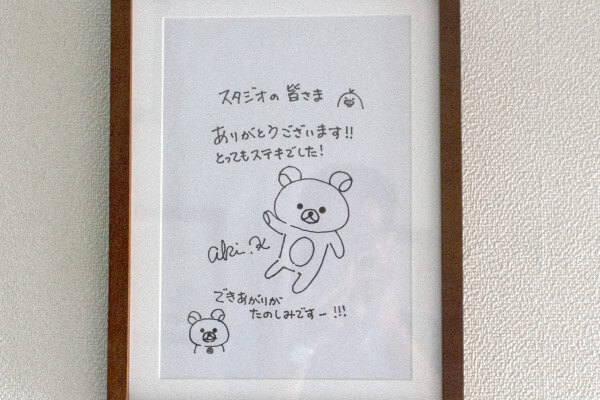 スタジオの 皆さま
ありがとうございます!!
とってもステキでした!
aki.
できあがりが
たのしみですー!!!